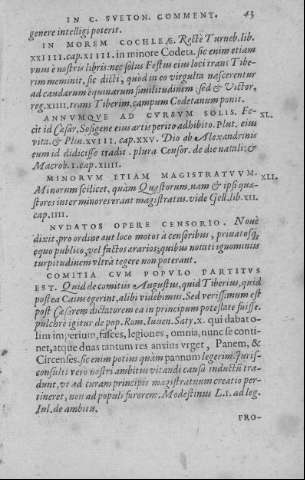 IN C. SVETON. COMMENT. 43
genere intelligi poterit.
IN MOREM COCHLEÆ. Rectè Turneb. lib.
XXIIII. cap. XIIII. in minore Codeta. sic enim etiam
nostri libri: nec solus Festus eius loci trans Tibe-
rim meminit, sic dicti, quòd in eo virgulta nascerentur
ad caudarum equinarum similitudinem, sed & Victor,
reg. XIIII. trans Tiberim, campum Codetanum ponit.
ANNVMQVE AD CVRSVM SOLIS. Fe- XL.
cit id Cæsar, Sosigene eius artis perito adhibito. Plut. eius
vita. & Plin. XVIII. cap. XXV. Dio ab Alexandrinis
eum id didicisse tradit. plura Censor. de die natali: &
Macrob. I. cap. XIIII.
MINORVM ETIAM MAGISTRATVVM. XLI.
Minorum scilicet, quàm Quæstorum. nam & ipsi quæ-
stores inter minores erant magistratus. vide Gell. lib. XII.
cap. IIII.
NVDATOS OPERE CENSORIO. Nouè
dixit, pro ordine aut loco motos à censoribus, priuatosq́,
equo publico, vel factos ærarios; quibus notati ignominiis
turpitudinem vltrà tegere non poterant.
COMITIA CVM POPVLO PARTITVS
EST. Quid de comitiis Augustus, quid Tiberius, quid
postea Caius egerint, alibi videbimus. Sed verissimum est
post Cæsarem dictatorem ea in principum potestate fuisse.
pulchrè igitur de pop. Rom. Iuuen. Saty. X. qui dabat o-
lim imperium, fasces, legiones, omnia, nunc se conti-
net, atque duas tantum res anxius vrget, Panem, &
Circenses. sic enim potius quàm pannum legerim. Iuris-
consulti verò nostri ambitus vitandi causâ inductũ tra-
dunt, vt ad curam principis magistratuum creatio per-
tineret, non ad populi furorem. Modestinus L. I. ad leg.
Iul. de ambitu.
PRO-